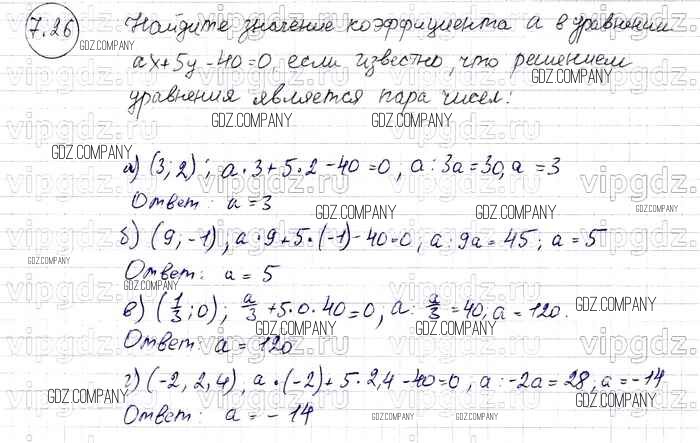 7.26 Найдите значение коэффициента а в уравнении
ах+5у-40=0, если известно, что решением
уравнения является пара чисел:
а) (3; 2); а·3+5·2-40=0, а: 3а=30, а=3
Ответ: а=3
б) (9; -1), а·9+5·(-1)-40=0, а: 9а=45; а=5
Ответ: а=5
в) (1/3; 0); а/3+5·0·40=0, а: а/3=40; а=120.
Ответ: а=120
г) (-2, 2,4), а·(-2)+5·2,4-40=0, а: -2а=28, а=-14
Ответ: а=-14
GDZ.COMPANY
GDZ.COMPANY
GDZ.COMPANY
GDZ.COMPANY
GDZ.COMPANY
GDZ.COMPANY
GDZ.COMPANY
GDZ.COMPANY
GDZ.COMPANY
GDZ.COMPANY
GDZ.COMPANY
GDZ.COMPANY
GDZ.COMPANY
GDZ.COMPANY
GDZ.COMPANY
GDZ.COMPANY
vipgdz.ru